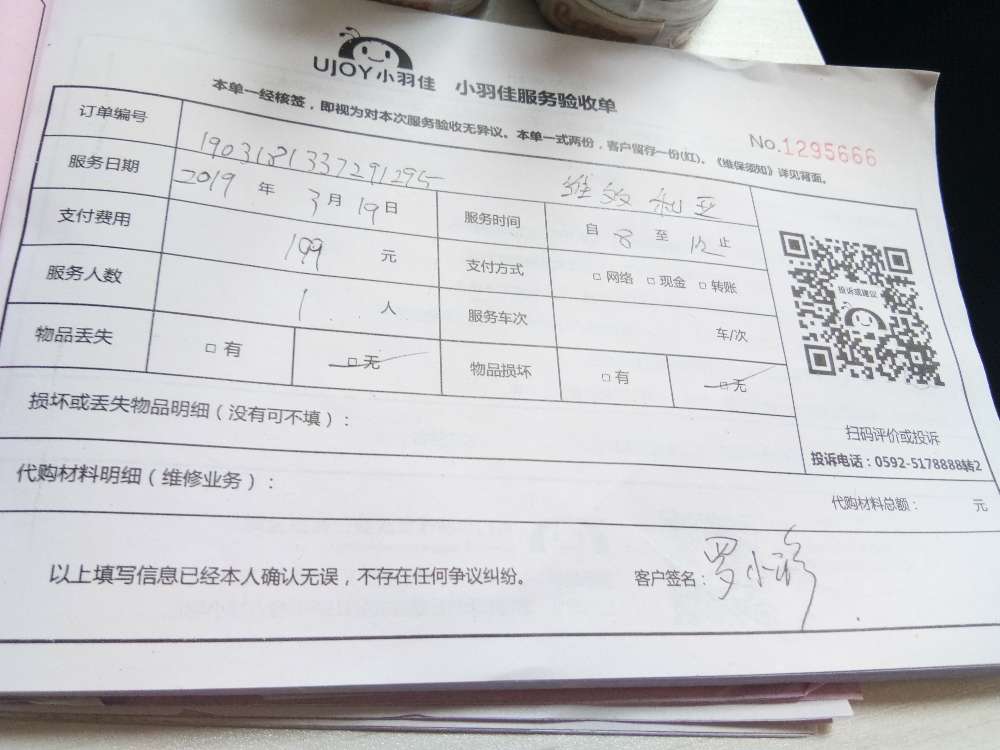 UJOY小羽佳 小羽佳服务验收单
本单一经核签，即视为对本次服务验收无异议。本单一式两份，客户留存一份(红)。《维保须知》详见背面。
No.1295666
订单编号 1903181337291295 维多利亚
服务日期 2019 年 3 月 19 日 服务时间 自 8 至 12 止
支付费用 199 元 支付方式 □网络 □现金 □转账
服务人数 1 人 服务车次 车/次
物品丢失 □有 □无 物品损坏 □有 □无
投诉或建议
扫码评价或投诉
投诉电话：0592-5178888转2
损坏或丢失物品明细（没有可不填）：
代购材料明细（维修业务）：
代购材料总额： 元
以上填写信息已经本人确认无误，不存在任何争议纠纷。 客户签名：罗小彩